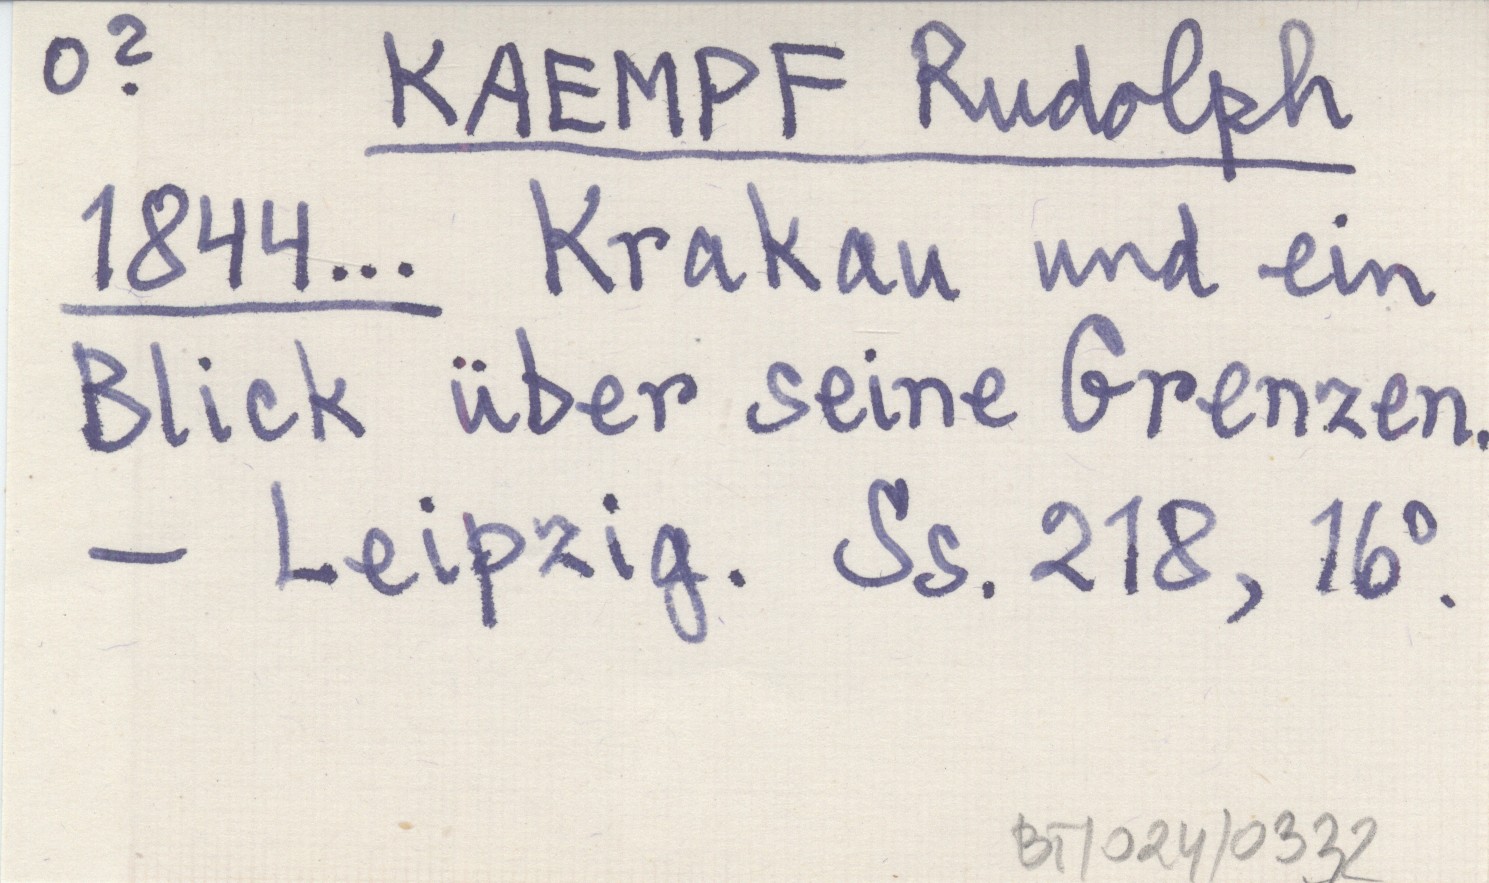 o? KAEMPF Rudolph
1844... Krakau und ein
Blick über seine Grenzen.
— Leipzig. Ss. 218, 16°.
BT/024/0332